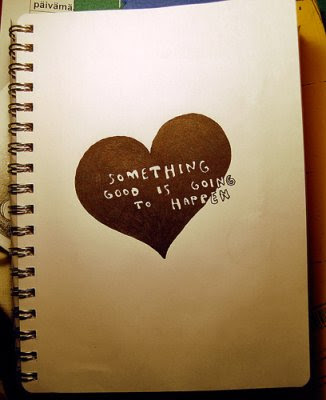 päivämä
SOMETHING
GOOD IS GOING
TO HAPPEN